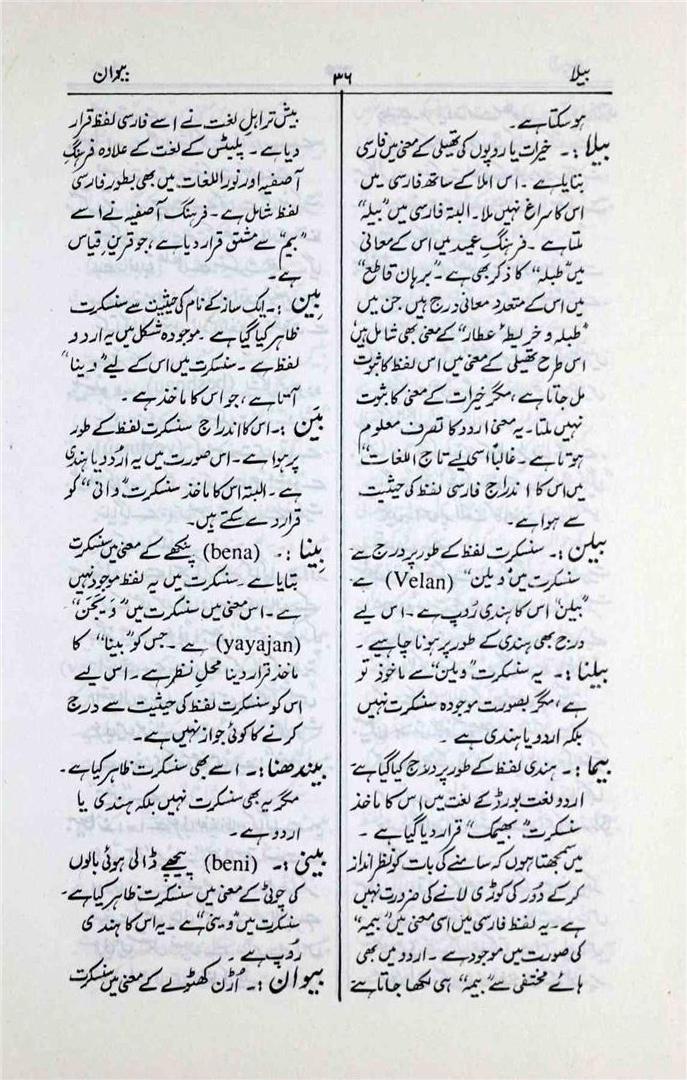 بیلا
۳۶
بیوان
ہو سکتا ہے۔
بیلا :۔ خیرات یا روپوں کی تھیلی کے معنی میں فارسی
بتایا ہے۔ اس املا کے ساتھ فارسی میں
اس کا سراغ نہیں ملا۔ البتہ فارسی میں "بیلہ"
ملتا ہے۔ فرہنگِ عمید میں اس کے معانی
میں "طبلہ" کا ذکر بھی ہے۔ "برہان قاطع"
میں اس کے متعدد معانی درج ہیں جن میں
"طبلہ و خریطہ عطار" کے معنی بھی شامل ہیں
اس طرح تھیلی کے معنی میں اس لفظ کا ثبوت
مل جاتا ہے، مگر خیرات کے معنی کا ثبوت
نہیں ملتا۔ یہ معنی اردو کا تصرف معلوم
ہوتا ہے۔ غالباً اسی لیے تاج اللغات"
میں اس کا اندراج فارسی لفظ کی حیثیت
سے ہوا ہے۔
بیلن :۔ سنسکرت لفظ کے طور پر درج ہے
سنسکرت میں "ویلن" (Velan) ہے
"بیلن" اس کا ہندی رُوپ ہے۔ اس لیے
درج بھی ہندی کے طور پر ہونا چاہیے۔
بیلنا :۔ یہ سنسکرت "ویلن" سے ماخوذ تو
ہے، مگر بصورت موجودہ سنسکرت نہیں
بلکہ اردو یا ہندی ہے۔
بیما :۔ ہندی لفظ کے طور پر درج کیا گیا ہے۔
اردو لغت بورڈ کے لغت میں اس کا ماخذ
سنسکرت "بھیمک" قرار دیا گیا ہے۔
میں سمجھتا ہوں کہ سامنے کی بات کو نظر انداز
کر کے دُور کی کوڑی لانے کی ضرورت نہیں
ہے۔ یہ لفظ فارسی میں اسی معنی میں "بیمہ"
کی صورت میں موجود ہے۔ اردو میں بھی
ہائے مختفی سے "بیمہ" ہی لکھا جاتا ہے
بیش تر اہلِ لغت نے اسے فارسی لفظ قرار
دیا ہے۔ پلیٹس کے لغت کے علاوہ فرہنگِ
آصفیہ اور نور اللغات میں بھی بطور فارسی
لفظ شامل ہے۔ فرہنگ آصفیہ نے اسے
"بیم" سے مشتق قرار دیا ہے، جو قرینِ قیاس
ہے۔
بِین :۔ ایک ساز کے نام کی حیثیت سے سنسکرت
ظاہر کیا گیا ہے۔ موجودہ شکل میں یہ اردو
لفظ ہے۔ سنسکرت میں اس کے لیے "وینا"
آتا ہے، جو اس کا ماخذ ہے۔
بَین :۔ اس کا اندراج سنسکرت لفظ کے طور
پر ہوا ہے۔ اس صورت میں یہ اردو یا ہندی
ہے۔ البتہ اس کا ماخذ سنسکرت "وانی" کو
قرار دے سکتے ہیں۔
بینا :۔ (bena) پنکھے کے معنی میں سنسکرت
بتایا ہے۔ سنسکرت میں یہ لفظ موجود نہیں
ہے۔ اس معنی میں سنسکرت میں "وَیَجَن"
(yayajan) ہے۔ جس کو "بینا" کا
ماخذ قرار دینا محلِ نظر ہے۔ اس لیے
اس کو سنسکرت لفظ کی حیثیت سے درج
کرنے کا کوئی جواز نہیں ہے۔
بیندھنا :۔ اسے بھی سنسکرت ظاہر کیا ہے۔
مگر یہ بھی سنسکرت نہیں بلکہ ہندی یا
اردو ہے۔
بینی :۔ (beni) پیچھے ڈالی ہوئی بالوں
کی چوٹی کے معنی میں سنسکرت ظاہر کیا ہے۔
سنسکرت میں "وینی" ہے۔ یہ اس کا ہندی
رُوپ ہے۔
بیوان :۔ اُڑن کھٹولے کے معنی میں سنسکرت